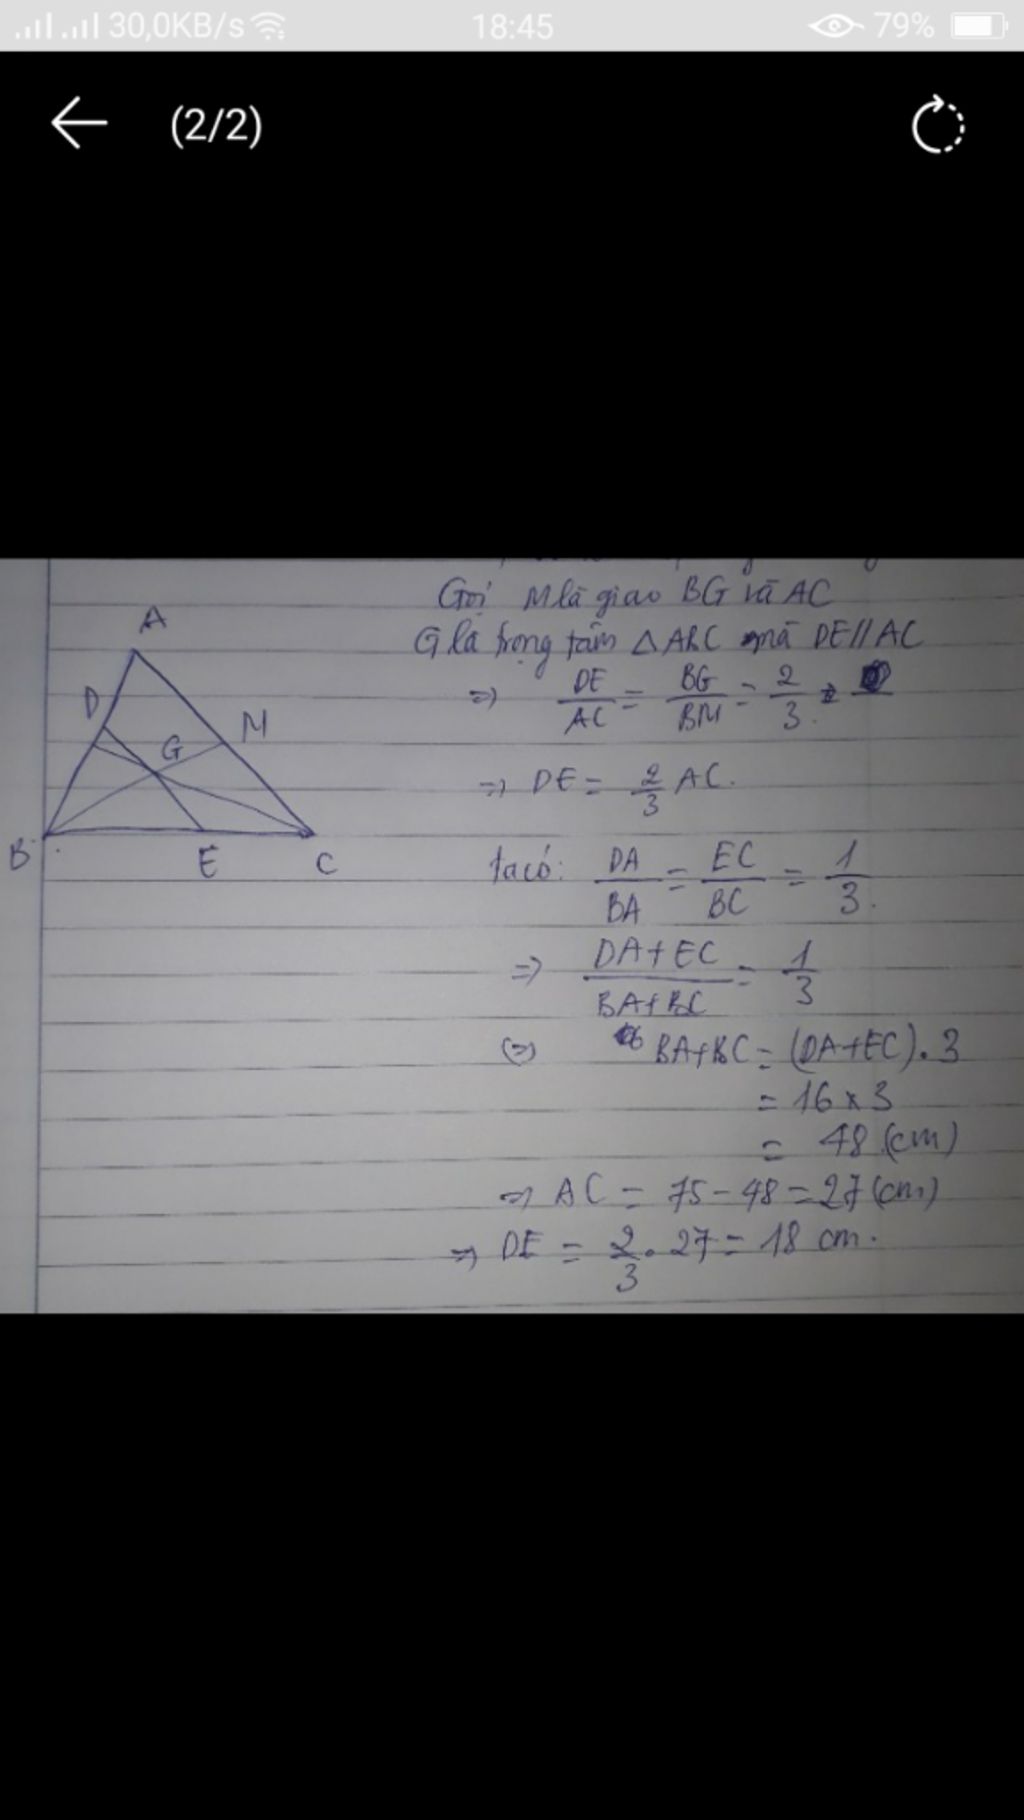 30,0KB/s 18:45 79%
(2/2)
Gọi M là giao BG và AC
G là trọng tâm △ABC mà DE//AC
=> DE/AC = BG/BM = 2/3
=> DE = 2/3 AC.
ta có: DA/BA = EC/BC = 1/3.
=> DA+EC/BA+BC = 1/3
(=) BA+BC = (DA+EC).3
= 16 x 3
= 48 (cm)
=> AC = 75-48=27(cm)
=> DE = 2/3 . 27 = 18 cm.
A
D
M
G
B
E
C